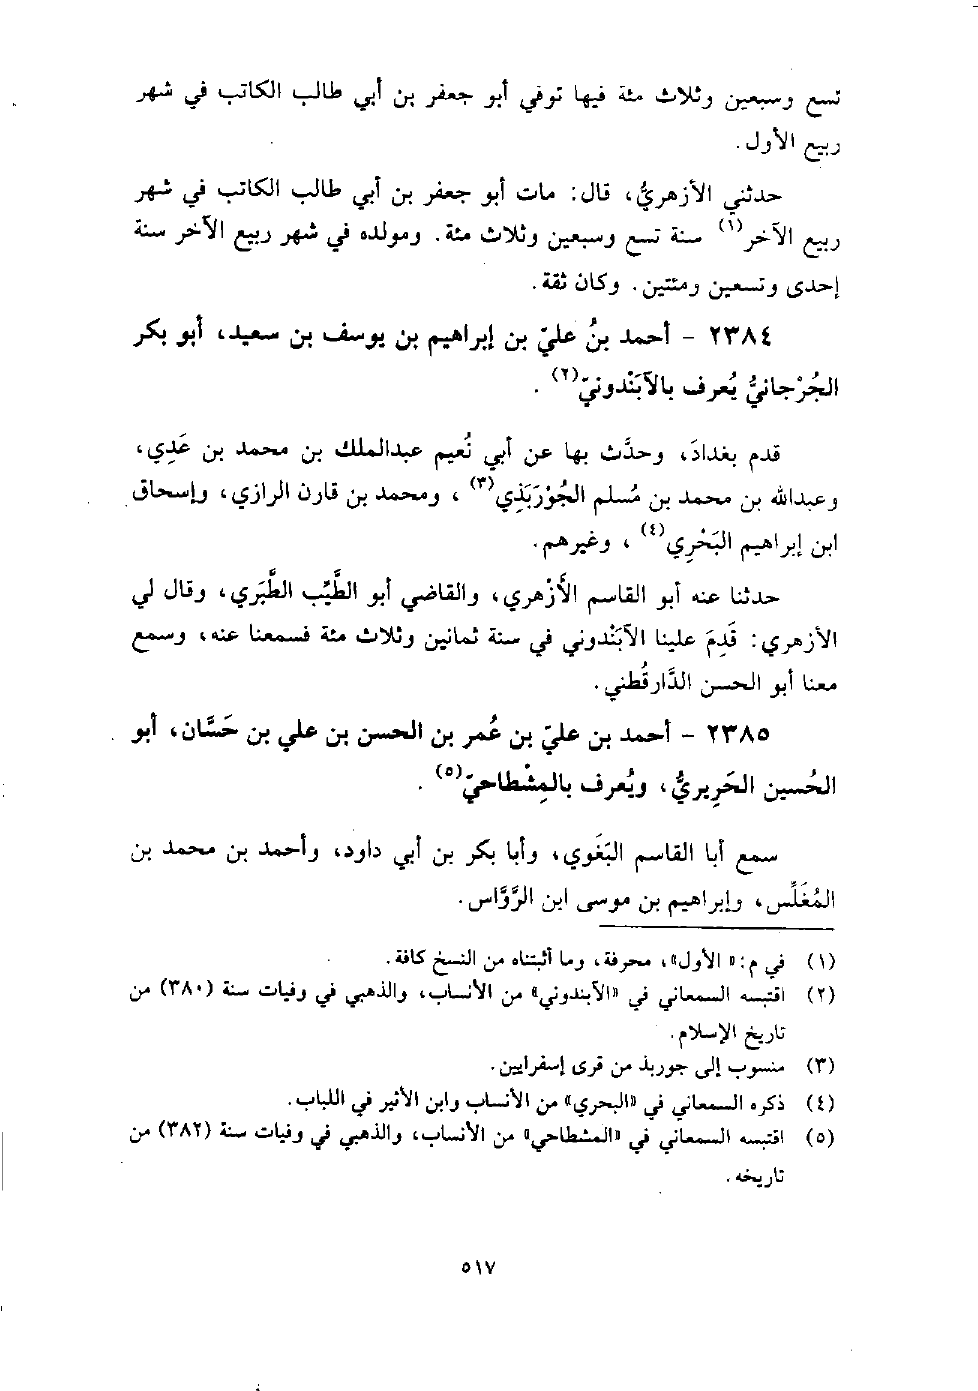 تسع وسبعين وثلاث مئة فيها توفي أبو جعفر بن أبي طالب الكاتب في شهر
ربيع الأول.
حدثني الأزهريُّ، قال: مات أبو جعفر بن أبي طالب الكاتب في شهر
ربيع الآخر(١) سنة تسع وسبعين وثلاث مئة. ومولده في شهر ربيع الآخر سنة
إحدى وتسعين ومئتين. وكان ثقة.
٢٣٨٤ - أحمد بنُ عليّ بن إبراهيم بن يوسف بن سعيد، أبو بكر
الجُرْجانيُّ يُعرف بالآبَنْدونيّ(٢).
قدم بغدادَ، وحدَّث بها عن أبي نُعيم عبدالملك بن محمد بن عَدِي،
وعبدالله بن محمد بن مُسلم الجُوْرَبَذِي(٣)، ومحمد بن قارن الرازي، وإسحاق
ابن إبراهيم البَحْرِي(٤)، وغيرهم.
حدثنا عنه أبو القاسم الأَزْهري، والقاضي أبو الطَّيِّب الطَّبَري، وقال لي
الأزهري: قَدِمَ علينا الآبَنْدوني في سنة ثمانين وثلاث مئة فسمعنا عنه، وسمع
معنا أبو الحسن الدَّارقُطني.
٢٣٨٥ - أحمد بن عليّ بن عُمر بن الحسن بن علي بن حَسَّان، أبو
الحُسين الحَرِيريُّ، ويُعرف بالمِشْطاحيّ(٥).
سمع أبا القاسم البَغَوي، وأبا بكر بن أبي داود، وأحمد بن محمد بن
المُغَلِّس، وإبراهيم بن موسى ابن الرَّوَّاس.
(١) في م: «الأول»، محرفة، وما أثبتناه من النسخ كافة.
(٢) اقتبسه السمعاني في «الآبندوني» من الأنساب، والذهبي في وفيات سنة (٣٨٠) من
تاريخ الإسلام.
(٣) منسوب إلى جوربذ من قرى إسفرايين.
(٤) ذكره السمعاني في «البحري» من الأنساب وابن الأثير في اللباب.
(٥) اقتبسه السمعاني في «المشطاحي» من الأنساب، والذهبي في وفيات سنة (٣٨٢) من
تاريخه.
٥١٧